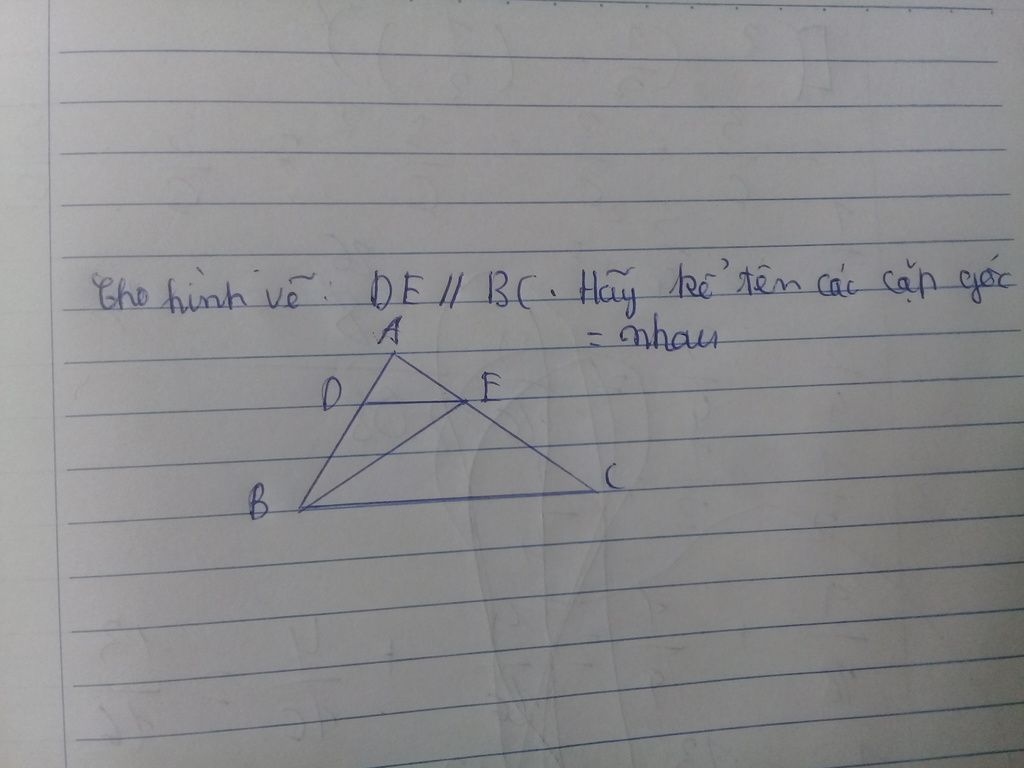 Cho hình vẽ: DE // BC. Hãy kể tên các cặp góc
= nhau
A
D E
B C